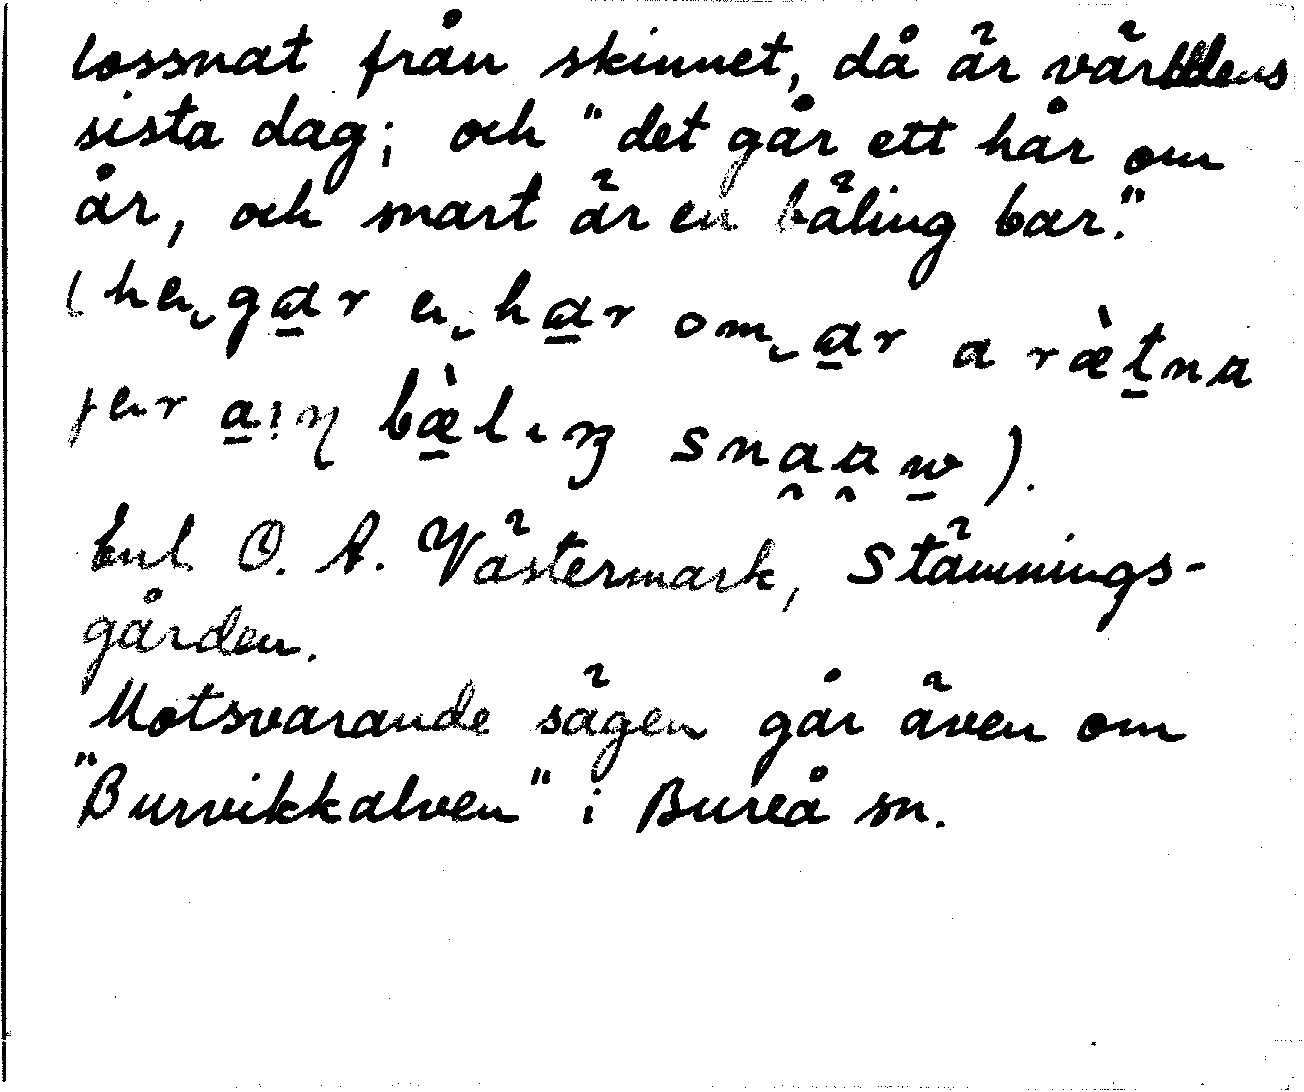 lossnat från skinnet, då är världens
sista dag; och "det går ett hår om
år, och snart är en bäling bar."
(he gar e har om ar a rætna
jer a:iŋ bæ̀liŋ snaaw).
Enl. O. A. Västermark, Stämnings-
gården.
Motsvarande sägen går även om
"Burvikkalven" i Bureå sn.